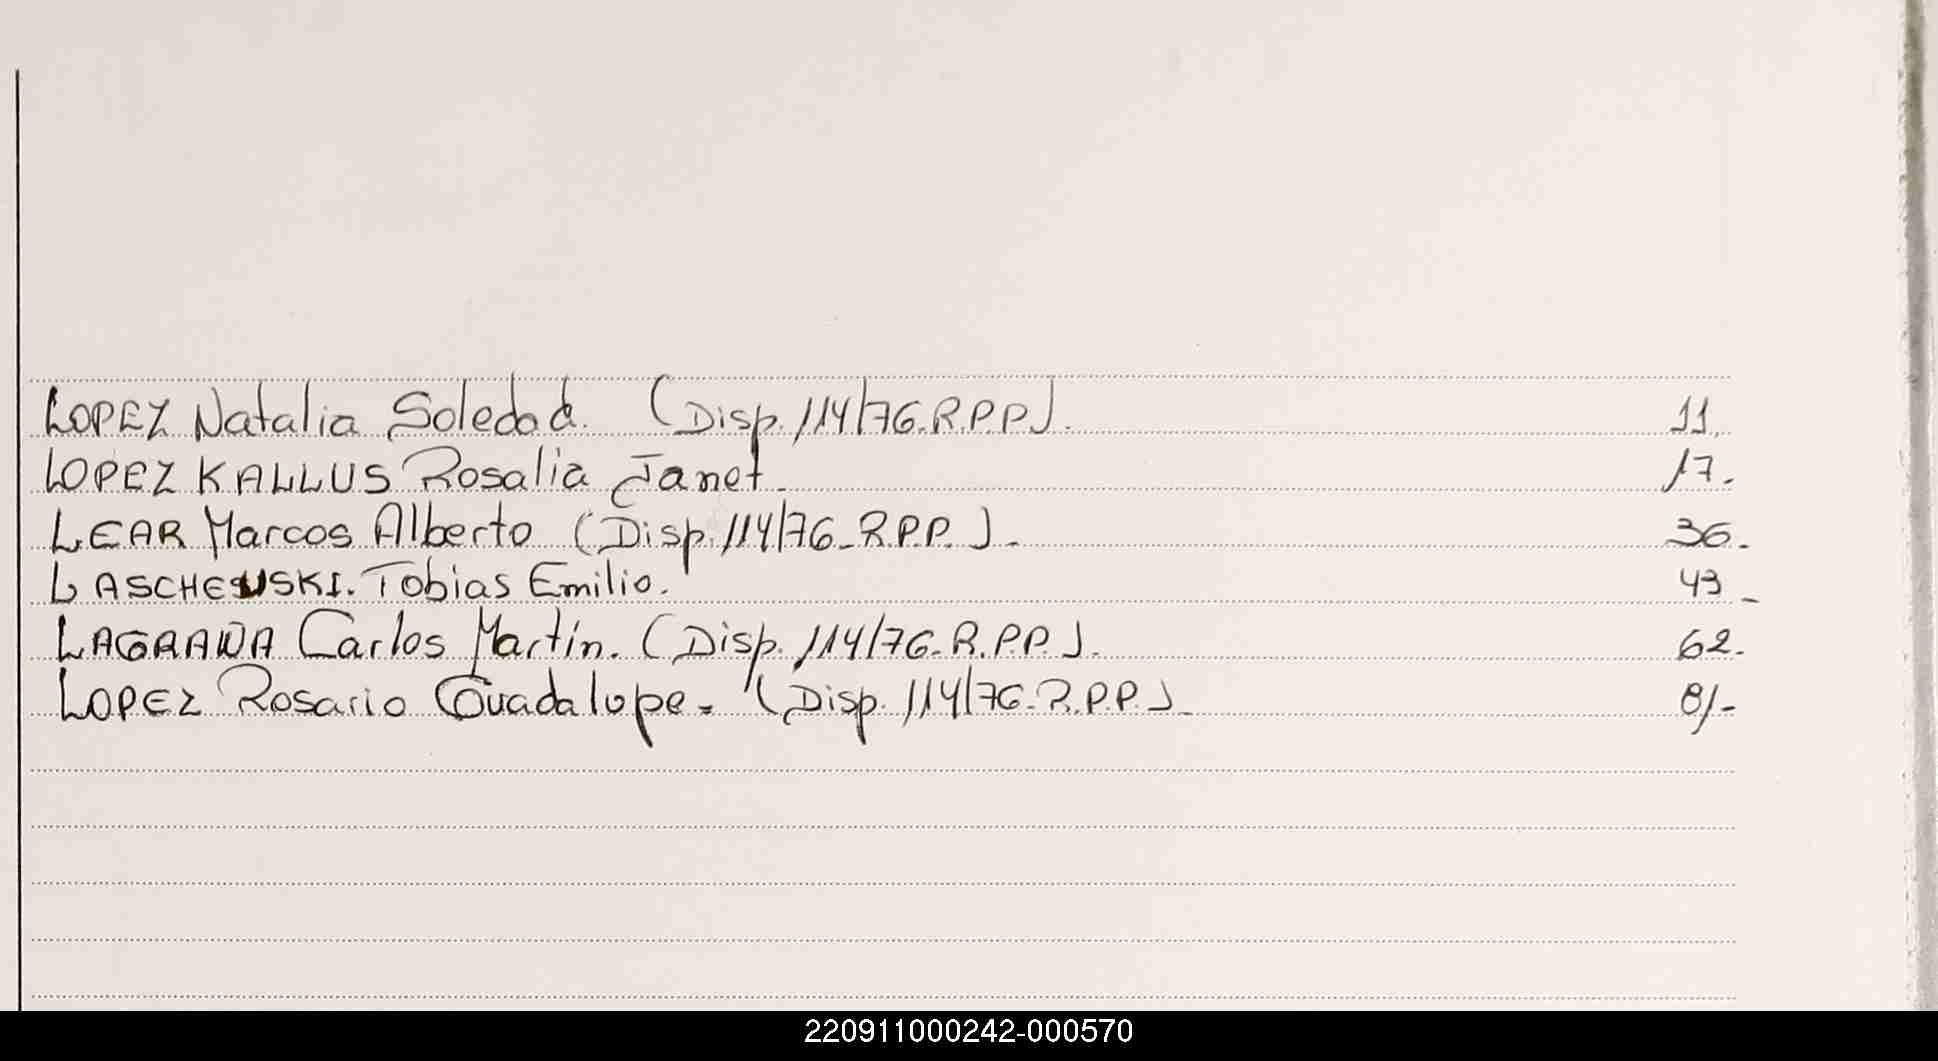 LOPEZ Natalia Soledad. (Disp. 114/76.R.P.P). 11.
LOPEZ KALLUS Rosalia Janet. 17.
LEAR Marcos Alberto (Disp. 114/76_R.P.P.). 36.
LASCHEWSKI. Tobias Emilio. 43_
LAGRANA Carlos Martín. (Disp. 114/76.R.P.P.). 62.
LOPEZ Rosario Guadalupe. (Disp. 114/76.R.P.P.)_ 81-
220911000242-000570